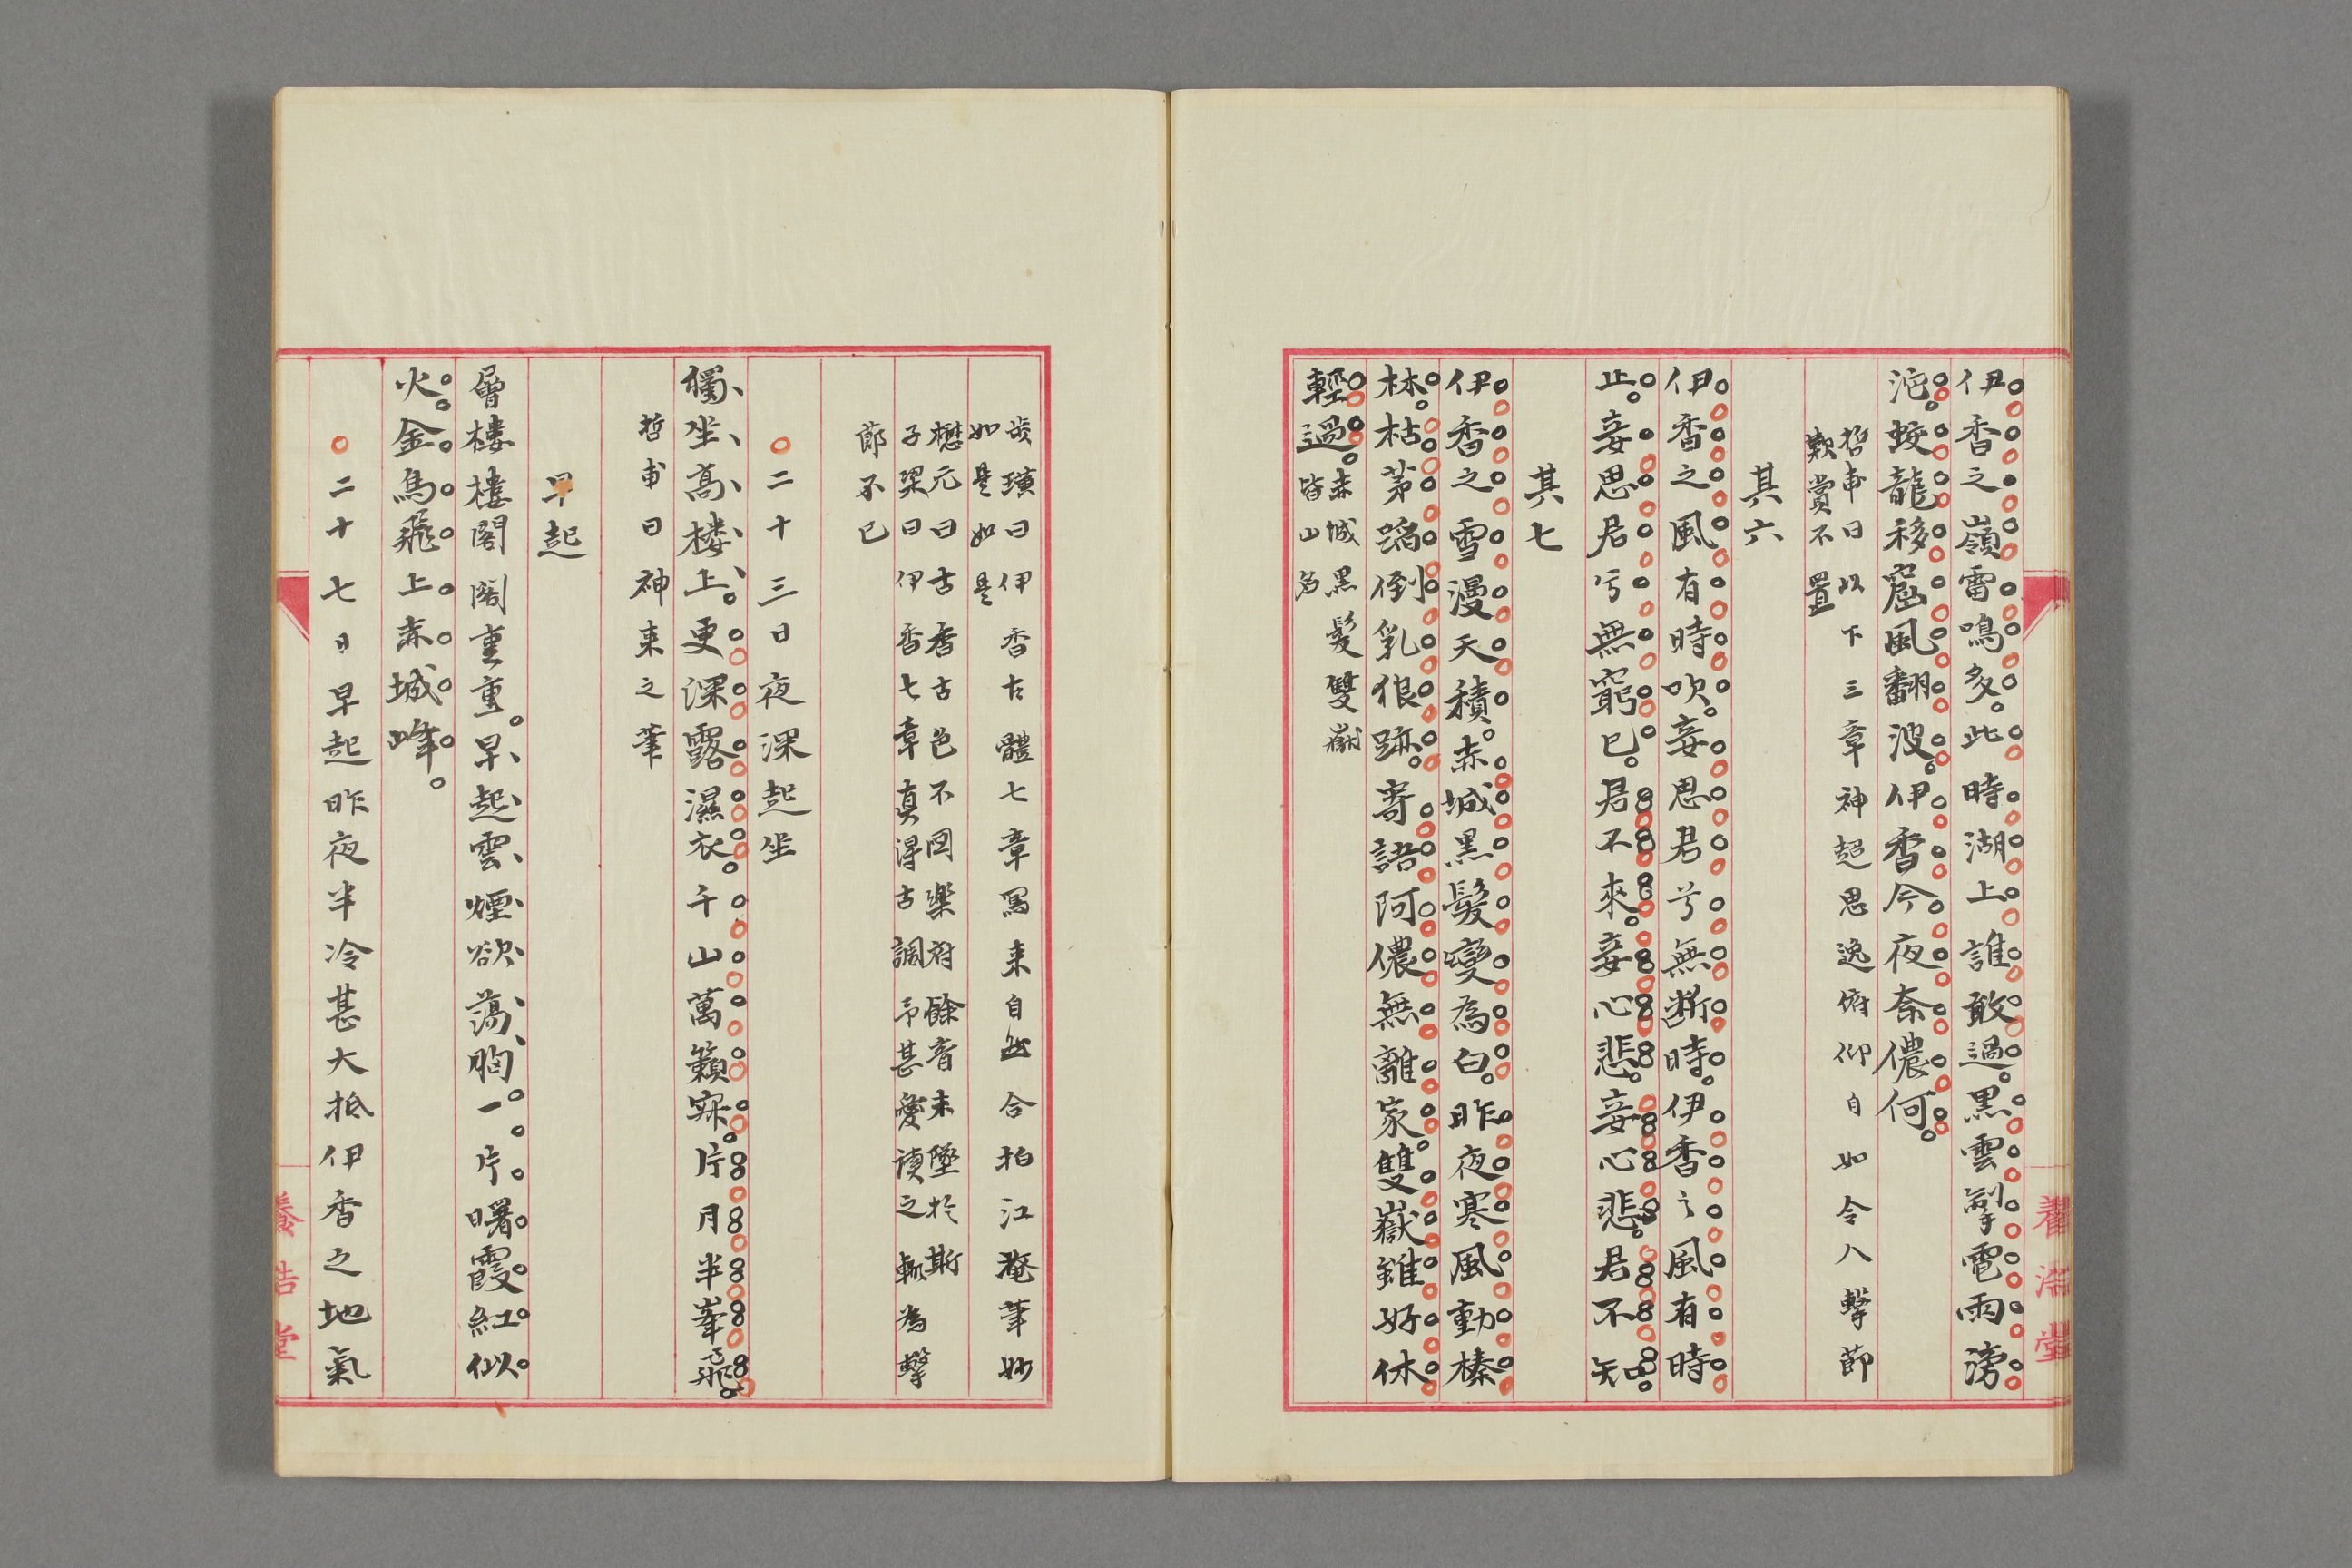 伊香之嶺雷鳴多。此時湖上誰敢過。黒雲掣電雨滂
沱。蛟龍移窟風翻波。伊香今夜奈儂何。
哲甫曰以下三章神超思逸俯仰自如令人擊節
歎賞不置
其六
伊香之風有時吹。妾思君兮無断時。伊香之風有時
止。妾思君兮無窮已。君不來。妾心悲。妾心悲。君不知。
其七
伊香之雪漫天積。赤城黒髮變為白。昨夜寒風動榛
林。枯茅蹈倒乳狼跡。寄語阿儂無離家。雙嶽雖好休
輕過。赤城黒髮雙嶽
皆山名
炎璜曰伊香古體七章写来自然合拍江淹筆妙
如是如是
懋元曰古香古色不図楽府餘音未墜於斯
子梁曰伊香七章真得古調予甚愛讀之輒為擊
節不已
二十三日夜深起坐
獨坐高楼上。更深露濕衣。千山萬籟寂。片月半峯飛。
哲甫曰神来之筆
早起
層楼楼閣閣重重。早起雲煙欲蕩胸。一片曙霞紅似
火。金烏飛上赤城峰。
二十七日早起昨夜半冷甚大抵伊香之地氣
養浩堂
養浩堂